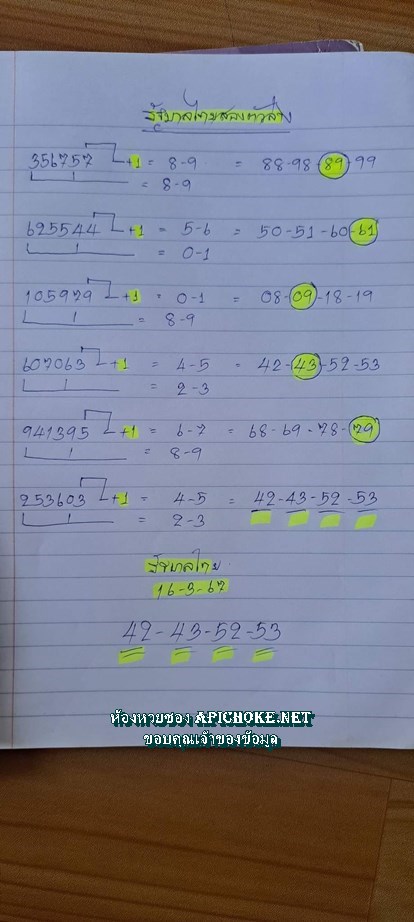 รัฐบาลไทยสองตัวล่าง
356757 +1 = 8-9 = 88-98-89-99
= 8-9
625544 +1 = 5-6 = 50-51-60-61
= 0-1
105979 +1 = 0-1 = 08-09-18-19
= 8-9
607063 +1 = 4-5 = 42-43-52-53
= 2-3
941395 +1 = 6-7 = 68-69-78-79
= 8-9
253603 +1 = 4-5 = 42-43-52-53
= 2-3
รัฐบาลไทย
16-3-67
42-43-52-53
ห้องหวยซอง APICHOKE.NET
ขอบคุณเจ้าของข้อมูล